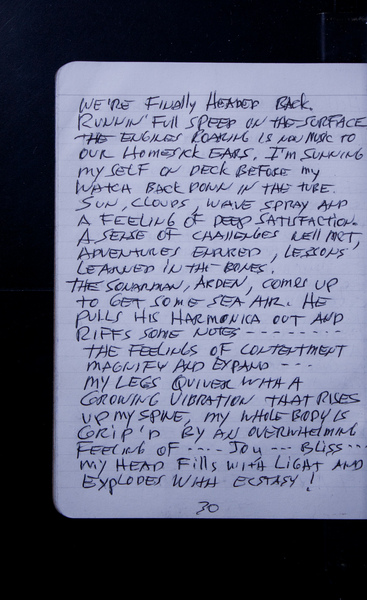 WE'RE FINALLY HEADED BACK.
RUNNIN' FULL SPEED ON THE SURFACE
THE ENGINES ROARING IS NOW MUSIC TO
OUR HOMESICK EARS. I'M SUNNING
MYSELF ON DECK BEFORE MY
WATCH BACK DOWN IN THE TUBE.
SUN, CLOUDS, WAVE SPRAY AND
A FEELING OF DEEP SATISFACTION.
A SENSE OF CHALLENGES WELL MET,
ADVENTURES ENDURED, LESSONS
LEARNED IN THE BONES.
THE SONARMAN, ARDEN, COMES UP
TO GET SOME SEA AIR. HE
PULLS HIS HARMONICA OUT AND
RIFFS SOME NOTES ----------
THE FEELINGS OF CONTENTMENT
MAGNIFY AND EXPAND ----
MY LEGS QUIVER WITH A
GROWING VIBRATION THAT RISES
UP MY SPINE, MY WHOLE BODY IS
GRIP'D BY AN OVERWHELMING
FEELING OF ---- JOY --- BLISS ---
MY HEAD FILLS WITH LIGHT AND
EXPLODES WITH ECSTASY!
30